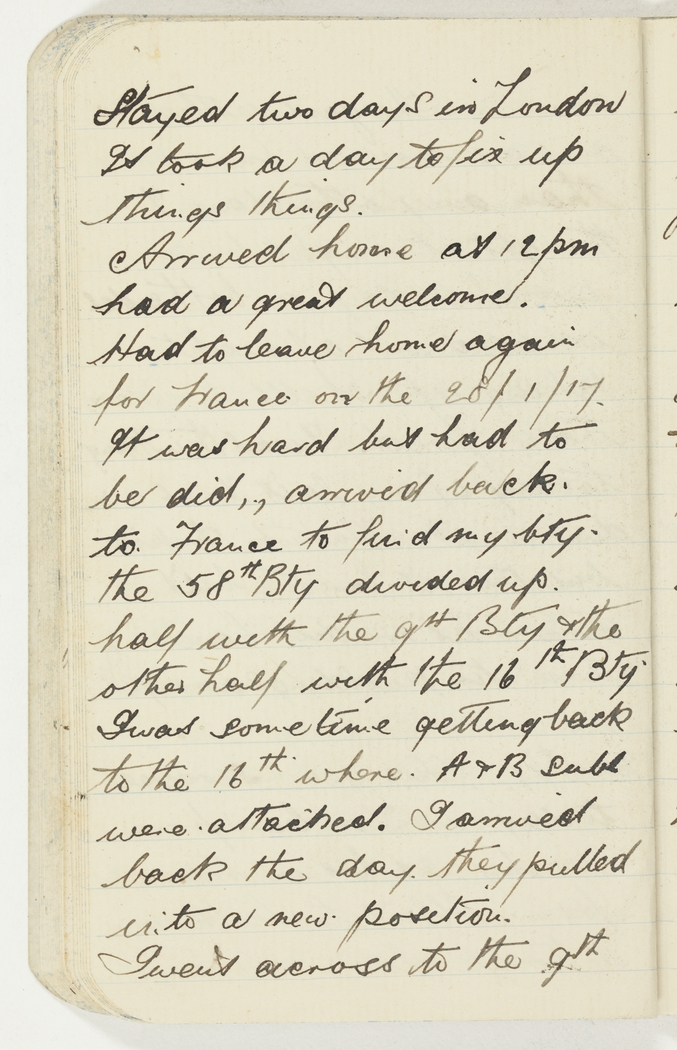 Stayed two days in London
It took a day to fix up
things things.
Arrived home at 12 pm
had a great welcome.
Had to leave home again
for france on the 28/1/17.
It was hard but had to
be did,., arrived back.
to. France to find my bty.
the 58th Bty divided up.
half with the 9th Bty & the
other half with the 16th Bty
I was some time getting back
to the 16th where. A & B subs
were. attached. I arrived
back the day. they pulled
into a new. position.
I went across to the 9th